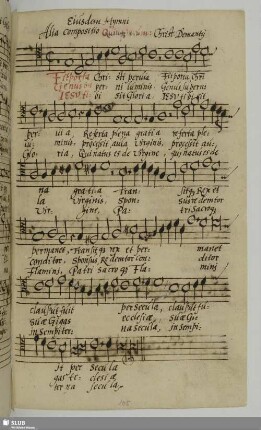 Eiusdem Hymni
Alia Compositio Quinque Christ: Demantij
Fit porta Christi pervia Fit porta Christi
Genus superni luminis, Genus superni
Iesu tibi sit Gloria Iesu tibi sit
pervia, Referta plena gratia referta ple
luminis, processit aula Virginis, processit au
Gloria, Qui natus es de Virgine, qui natus es de
na gratia Transitq; Rex et
la Virginis, Sponsus redemtor
Virgine, Patri Sacroq;
permanet, Transitq; rex et permanet
conditor, Sponsus Redemtor conditor
Flamini, Patri Sacroq; Flamini
clausus ut fuit per secula, clausus ut fu
suae Gigas ecclesiae, suae Gi
in sempiterna Secula, in sempi
it per Secula
gas Ecclesiae
terna secula.
SLUB